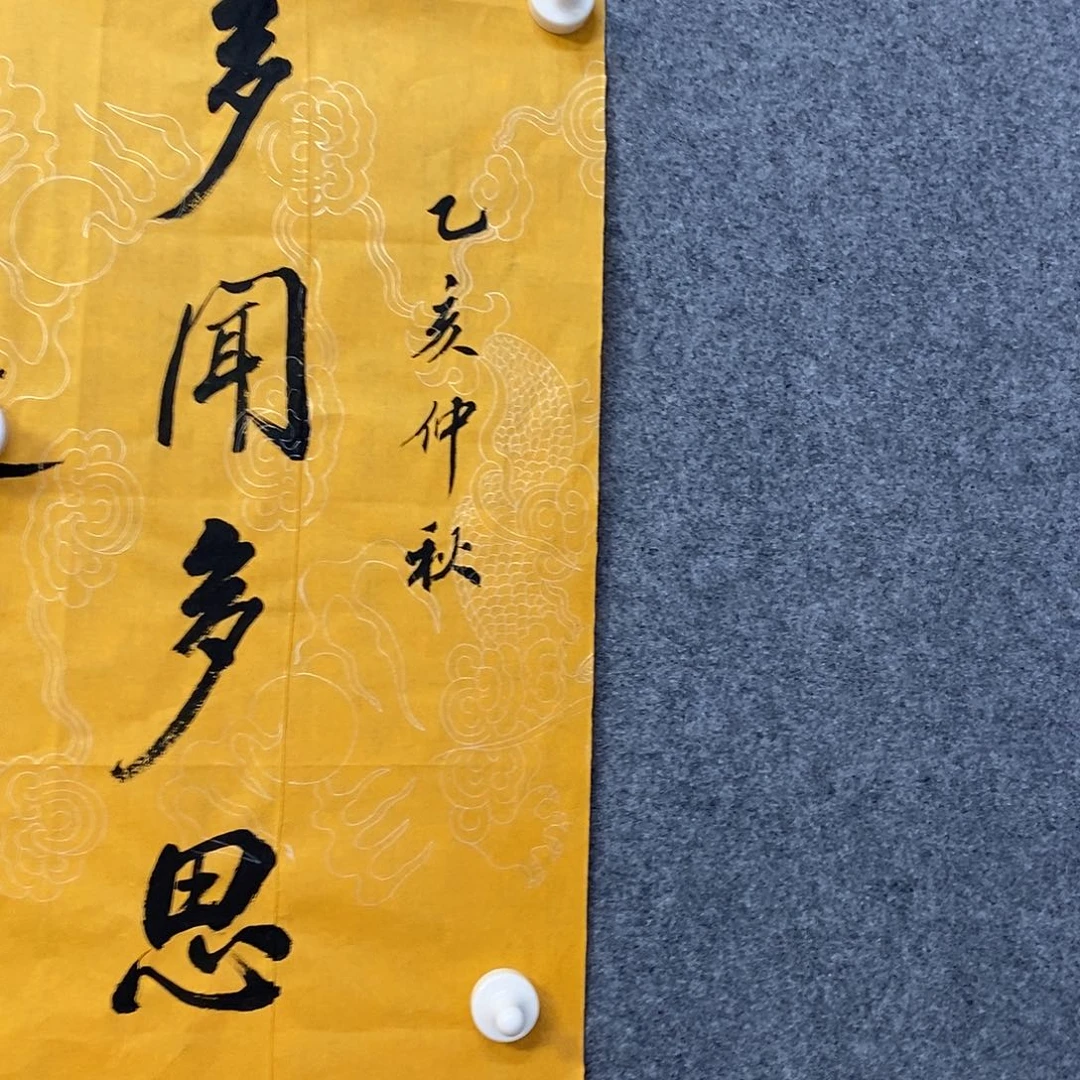 乙亥仲秋
多闻多思